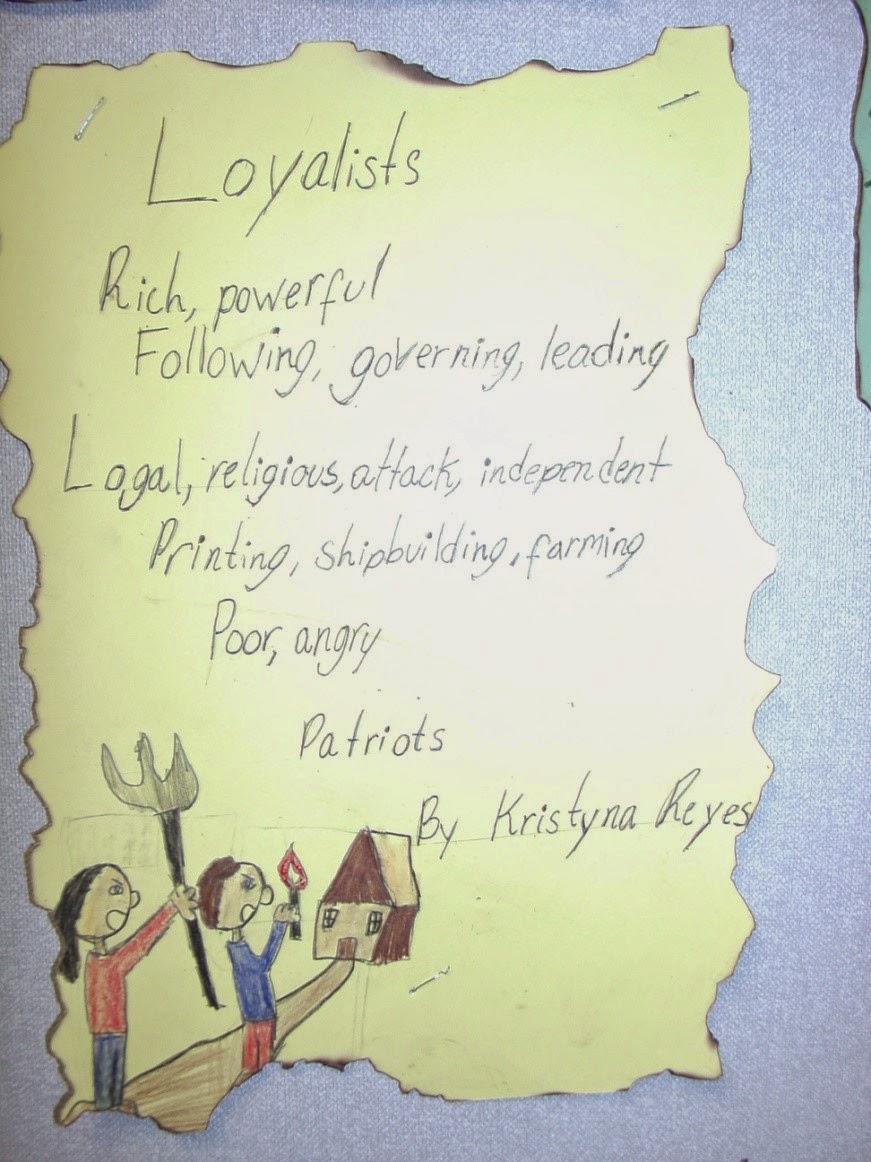 Loyalists
Rich, powerful
Following, governing, leading
Logal, religious, attack, independent
Printing, shipbuilding, farming
Poor, angry
Patriots
By Kristyna Reyes